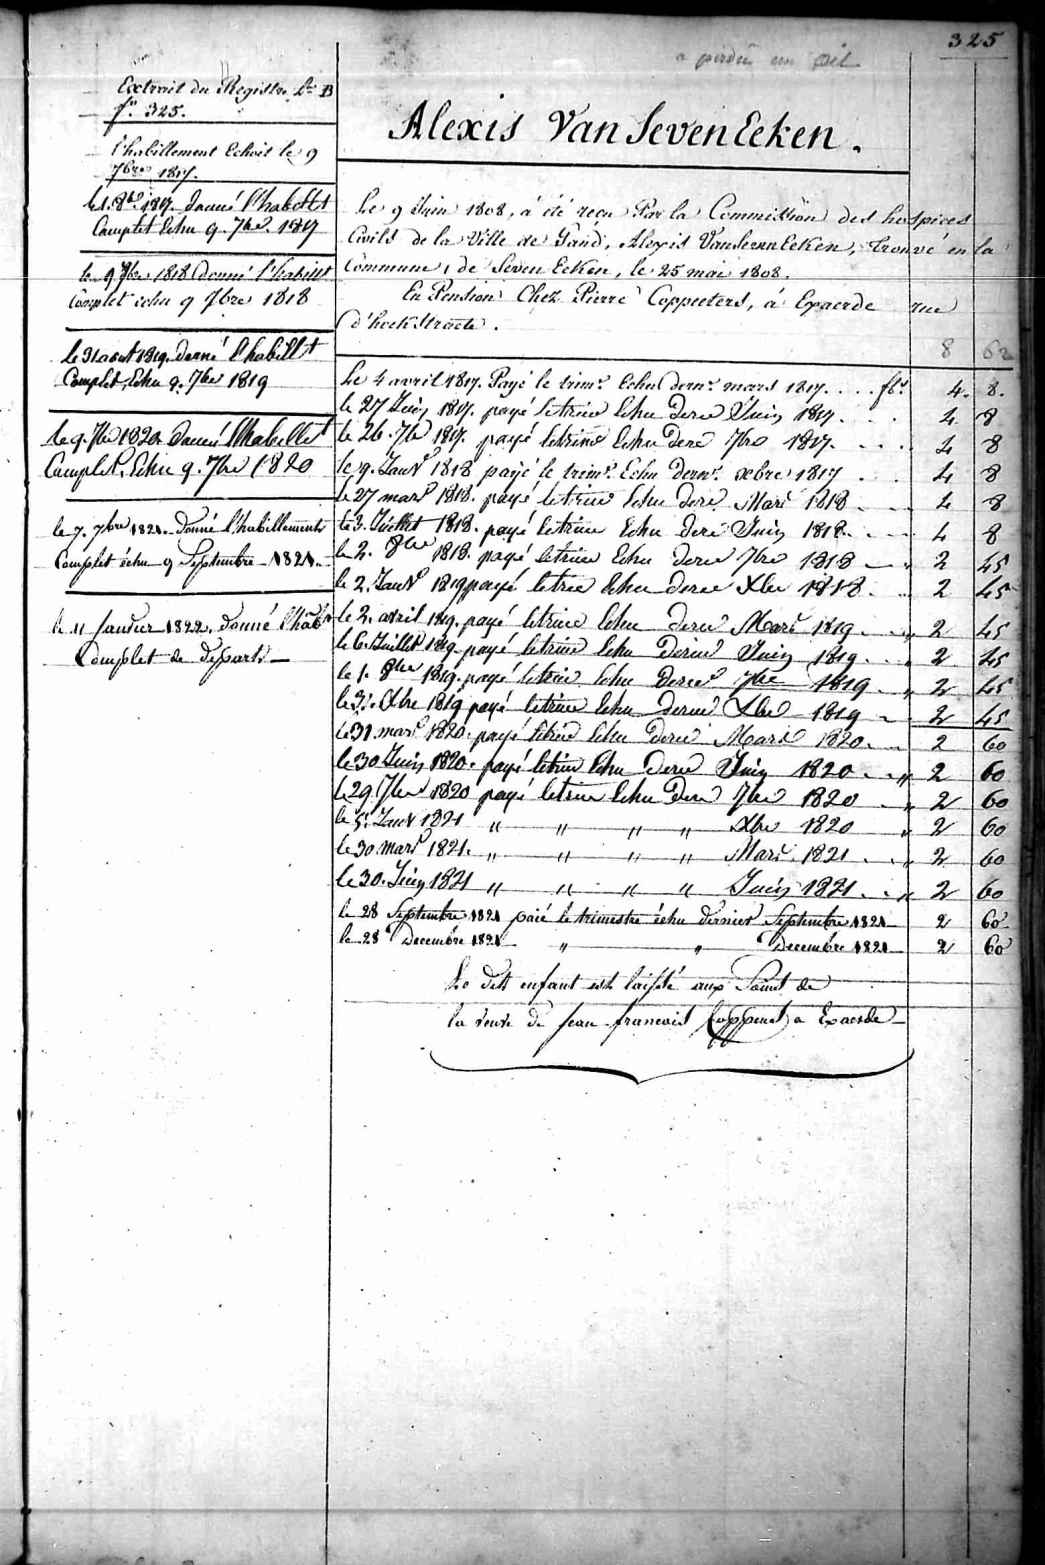 325
a perdu un œil
Extrait du Registre Lra B
fo. 325.
l'habillement Echoit le 9
7bre 1817.
le 1. 8bre 1817. donné l'habillt
Complet Echu 9. 7bre 1817
le 9 7bre 1818 donné l'habillt
Complet echu 9 7bre 1818
le 31 aout 1819. donné l'habillt
Complet, Echu 9. 7bre 1819
le 9. 7bre 1820. donné l'habillet
Complet, Echu 9. 7bre 1820
le 7. 7bre 1821. donné l'habillements
Complet échu 9 Septembre 1821.
le 11 Janvier 1822, donné l'hab
Complet de départ
Alexis Van SevenEeken.
Le 9 Juin 1808, à été recu Par la Commission des hospices
Civils de la Ville de Gand, Alexis VanSevenEeken, trouvé en la
Commune, de SevenEeken, le 25 mai 1808.
En Pension Chez Pierre Coppieters, á Exaerde rue
d'hoekstraete.
8 62
Le 4 avril 1817. Payé le trimre Echu dernr mars 1817. . . . fls 4. 8.
le 27 Juin 1817. payé letrim Echu dere Juin 1817. . . . 4 8
le 26. 7bre 1817. payé letrime Echu dere 7bre 1817. . . . 4 8
le 9. Janvr 1818 payé le trimre Echu dernr. xbre 1817 . . . 4 8
le 27 mars 1818. payé letrim Echu dere Mars 1818 . . 4 8
le 3. Juillet 1818. payé letrim Echu dere Juin 1818. . . 4 8
le 2. 8bre 1818. payé letrim Echu dere 7bre 1818 — " 2 45
le 2. Janvr 1819 payé letrie Echu dere Xbre 1818. . . 2 45
le 2. avril 1819. payé letrim Echu dere Mars 1819 . . " 2 45
le 6. Juillet 1819. payé letrim Echu dernie Juin 1819 . . " 2 45
le 1. 8bre 1819. payé letrim Echu dernr 7bre 1819 . " 2 45
le 31. Xbre 1819 payé letrim Echu dernie Xbre 1819 — 2 45
le 31. mars 1820. payé letrim Echu dernie Mars 1820. . 2 60
le 30 Juin 1820. payé letrim Echu dere Juin 1820 . . " 2 60
le 29. 7bre 1820 payé letrim Echu dere 7bre 1820 . " 2 60
le 5. Janvr 1821 " " " " Xbre 1820 " 2 60
le 30 mars 1821. " " " " Mars 1821 . . " 2 60
le 30. Juin 1821 " " " " Juin 1821 . . " 2 60
le 28 Septembre 1821 paié le trimestre échu dernier Septembre 1821 2 60
le 28 Decembre 1821 " " Decembre 1821 2 60
Le dit enfant est laissé aux de
la veuve de Jean francois a Exaerde